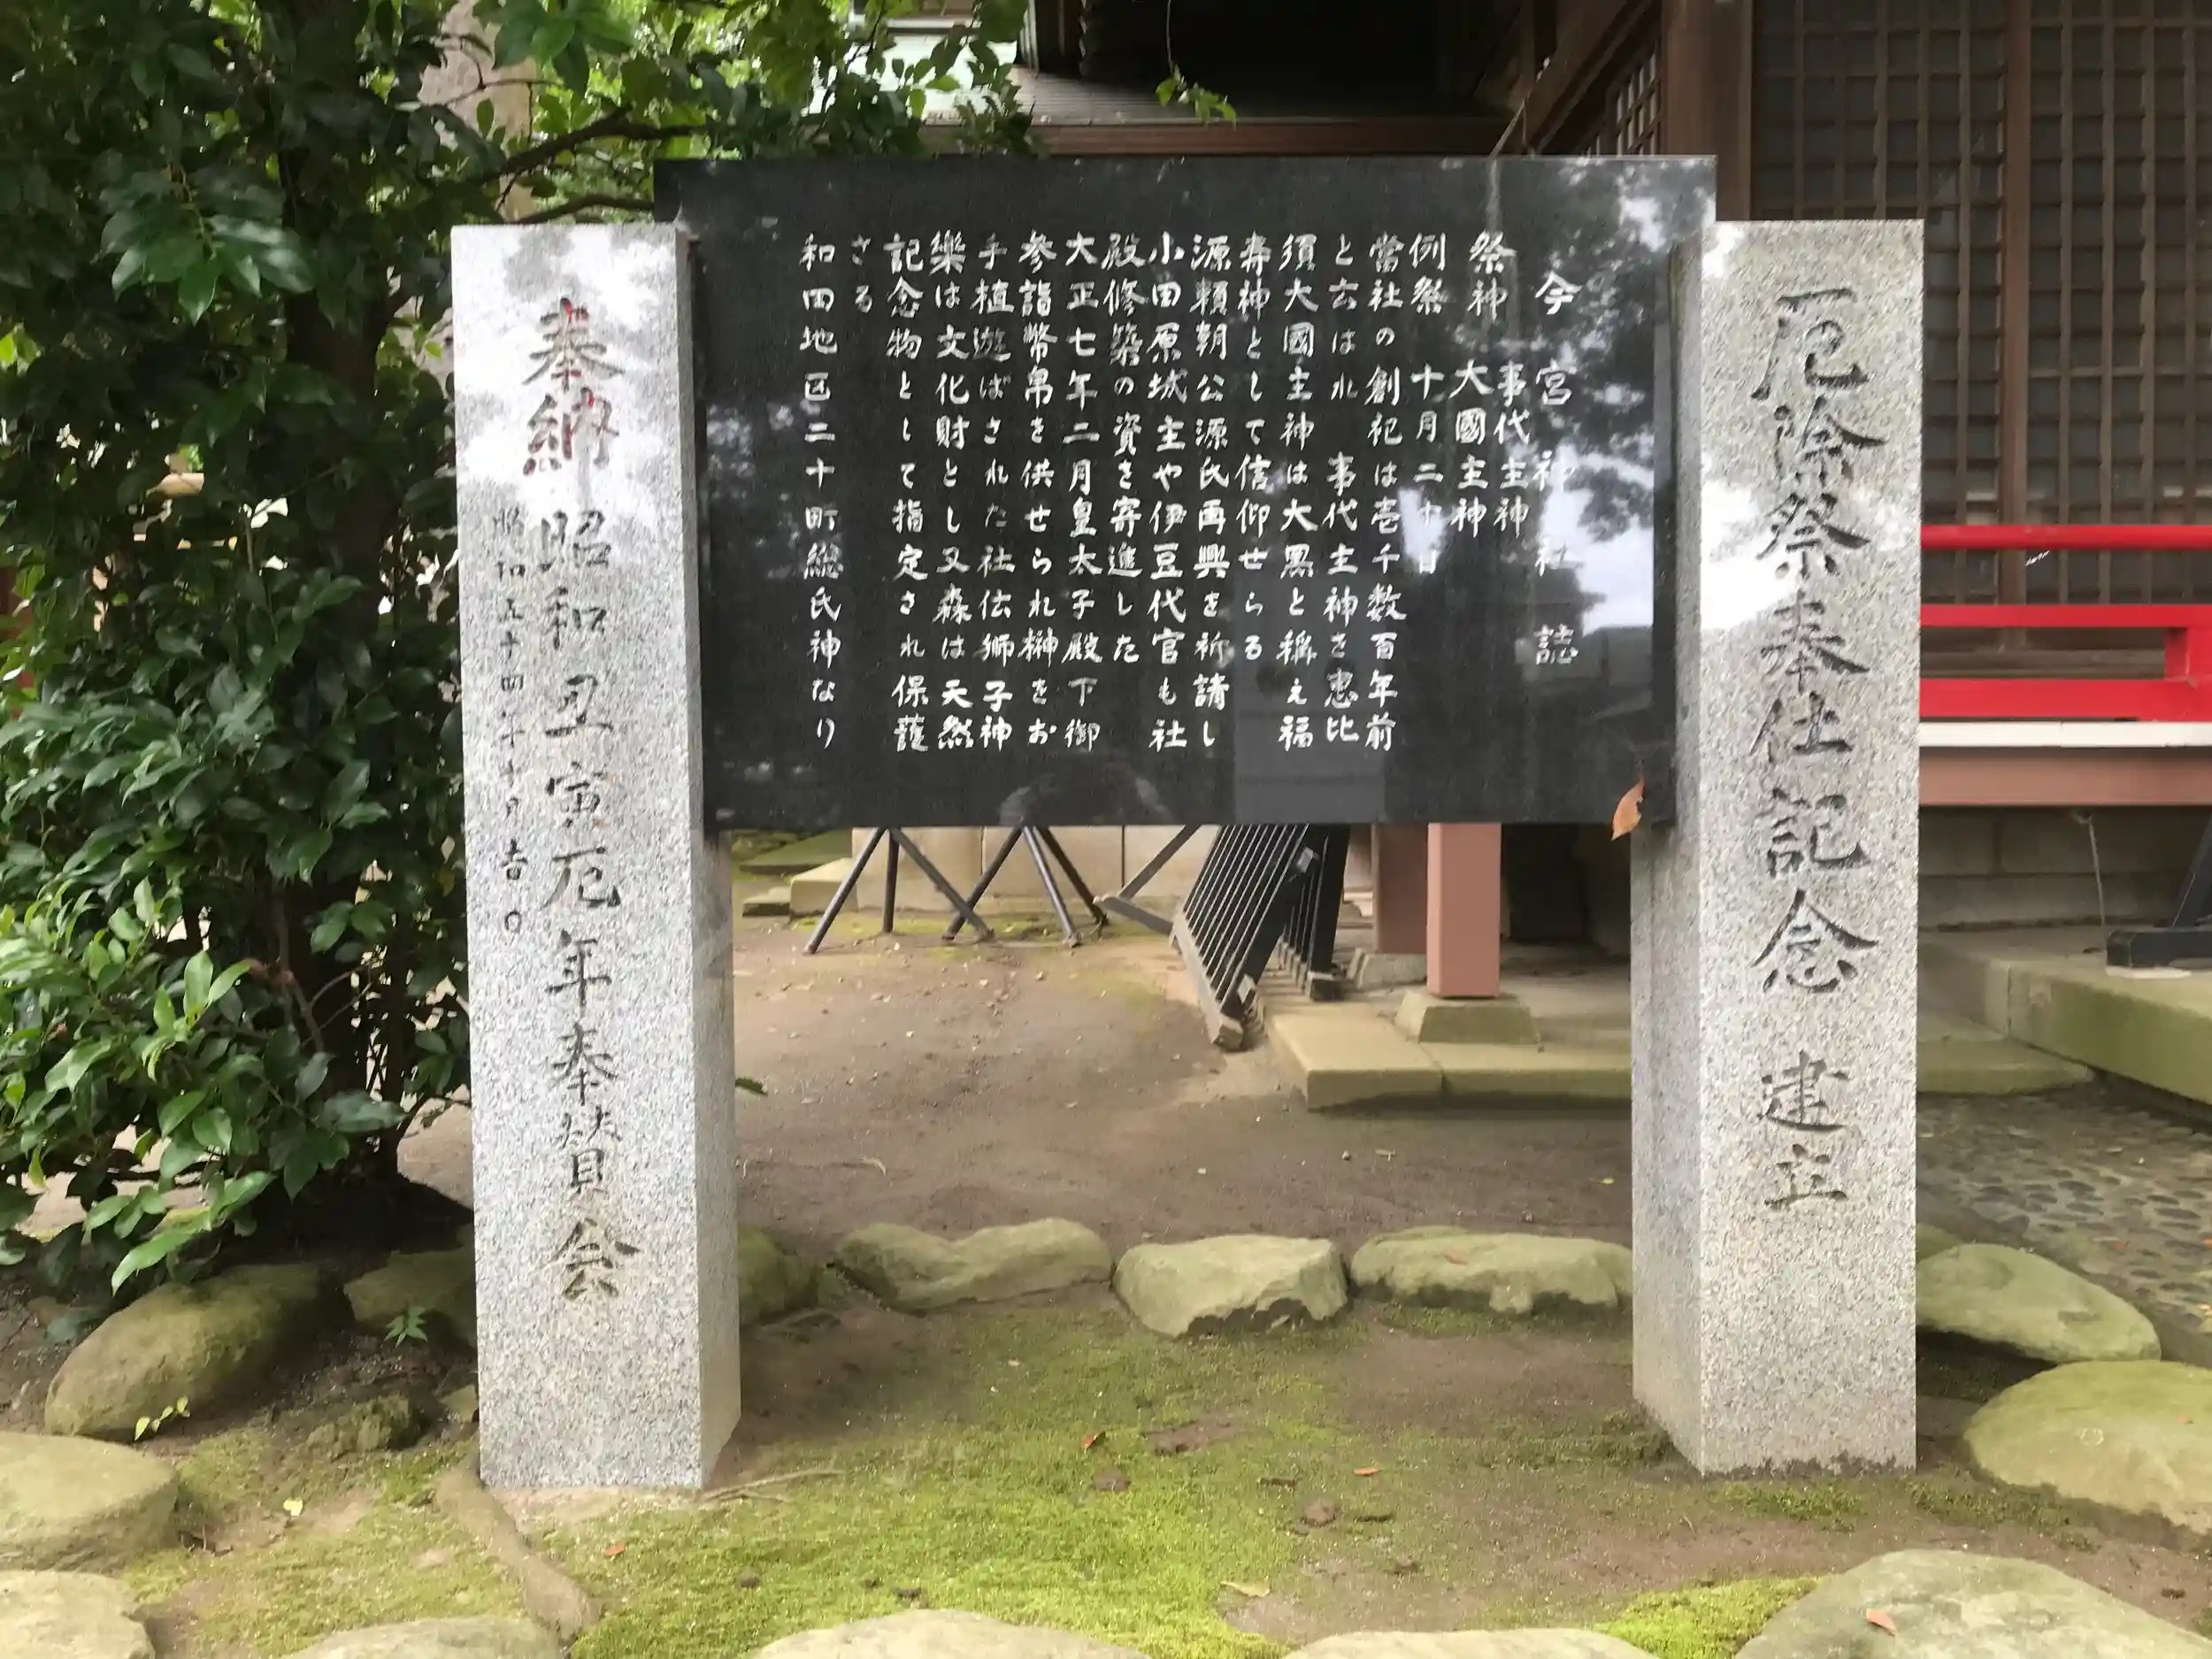 厄除祭奉仕記念 建立
今宮神社誌
祭神 事代主神
大國主神
例祭 十月二十日
當社の創祀は壱千数百年前
と云はれ 事代主神を恵比
須大國主神は大黒と稱え福
寿神として信仰せらる
源頼朝公源氏再興を祈請し
小田原城主や伊豆代官も社
殿修築の資を寄進した
大正七年二月皇太子殿下御
参詣幣帛を供せられ榊をお
手植遊ばされた社伝獅子神
樂は文化財とし又森は天然
記念物として指定され保護
さる
和田地区二十町総氏神なり
奉納 昭和丑寅厄年奉賛会
昭和五十四年十月吉日